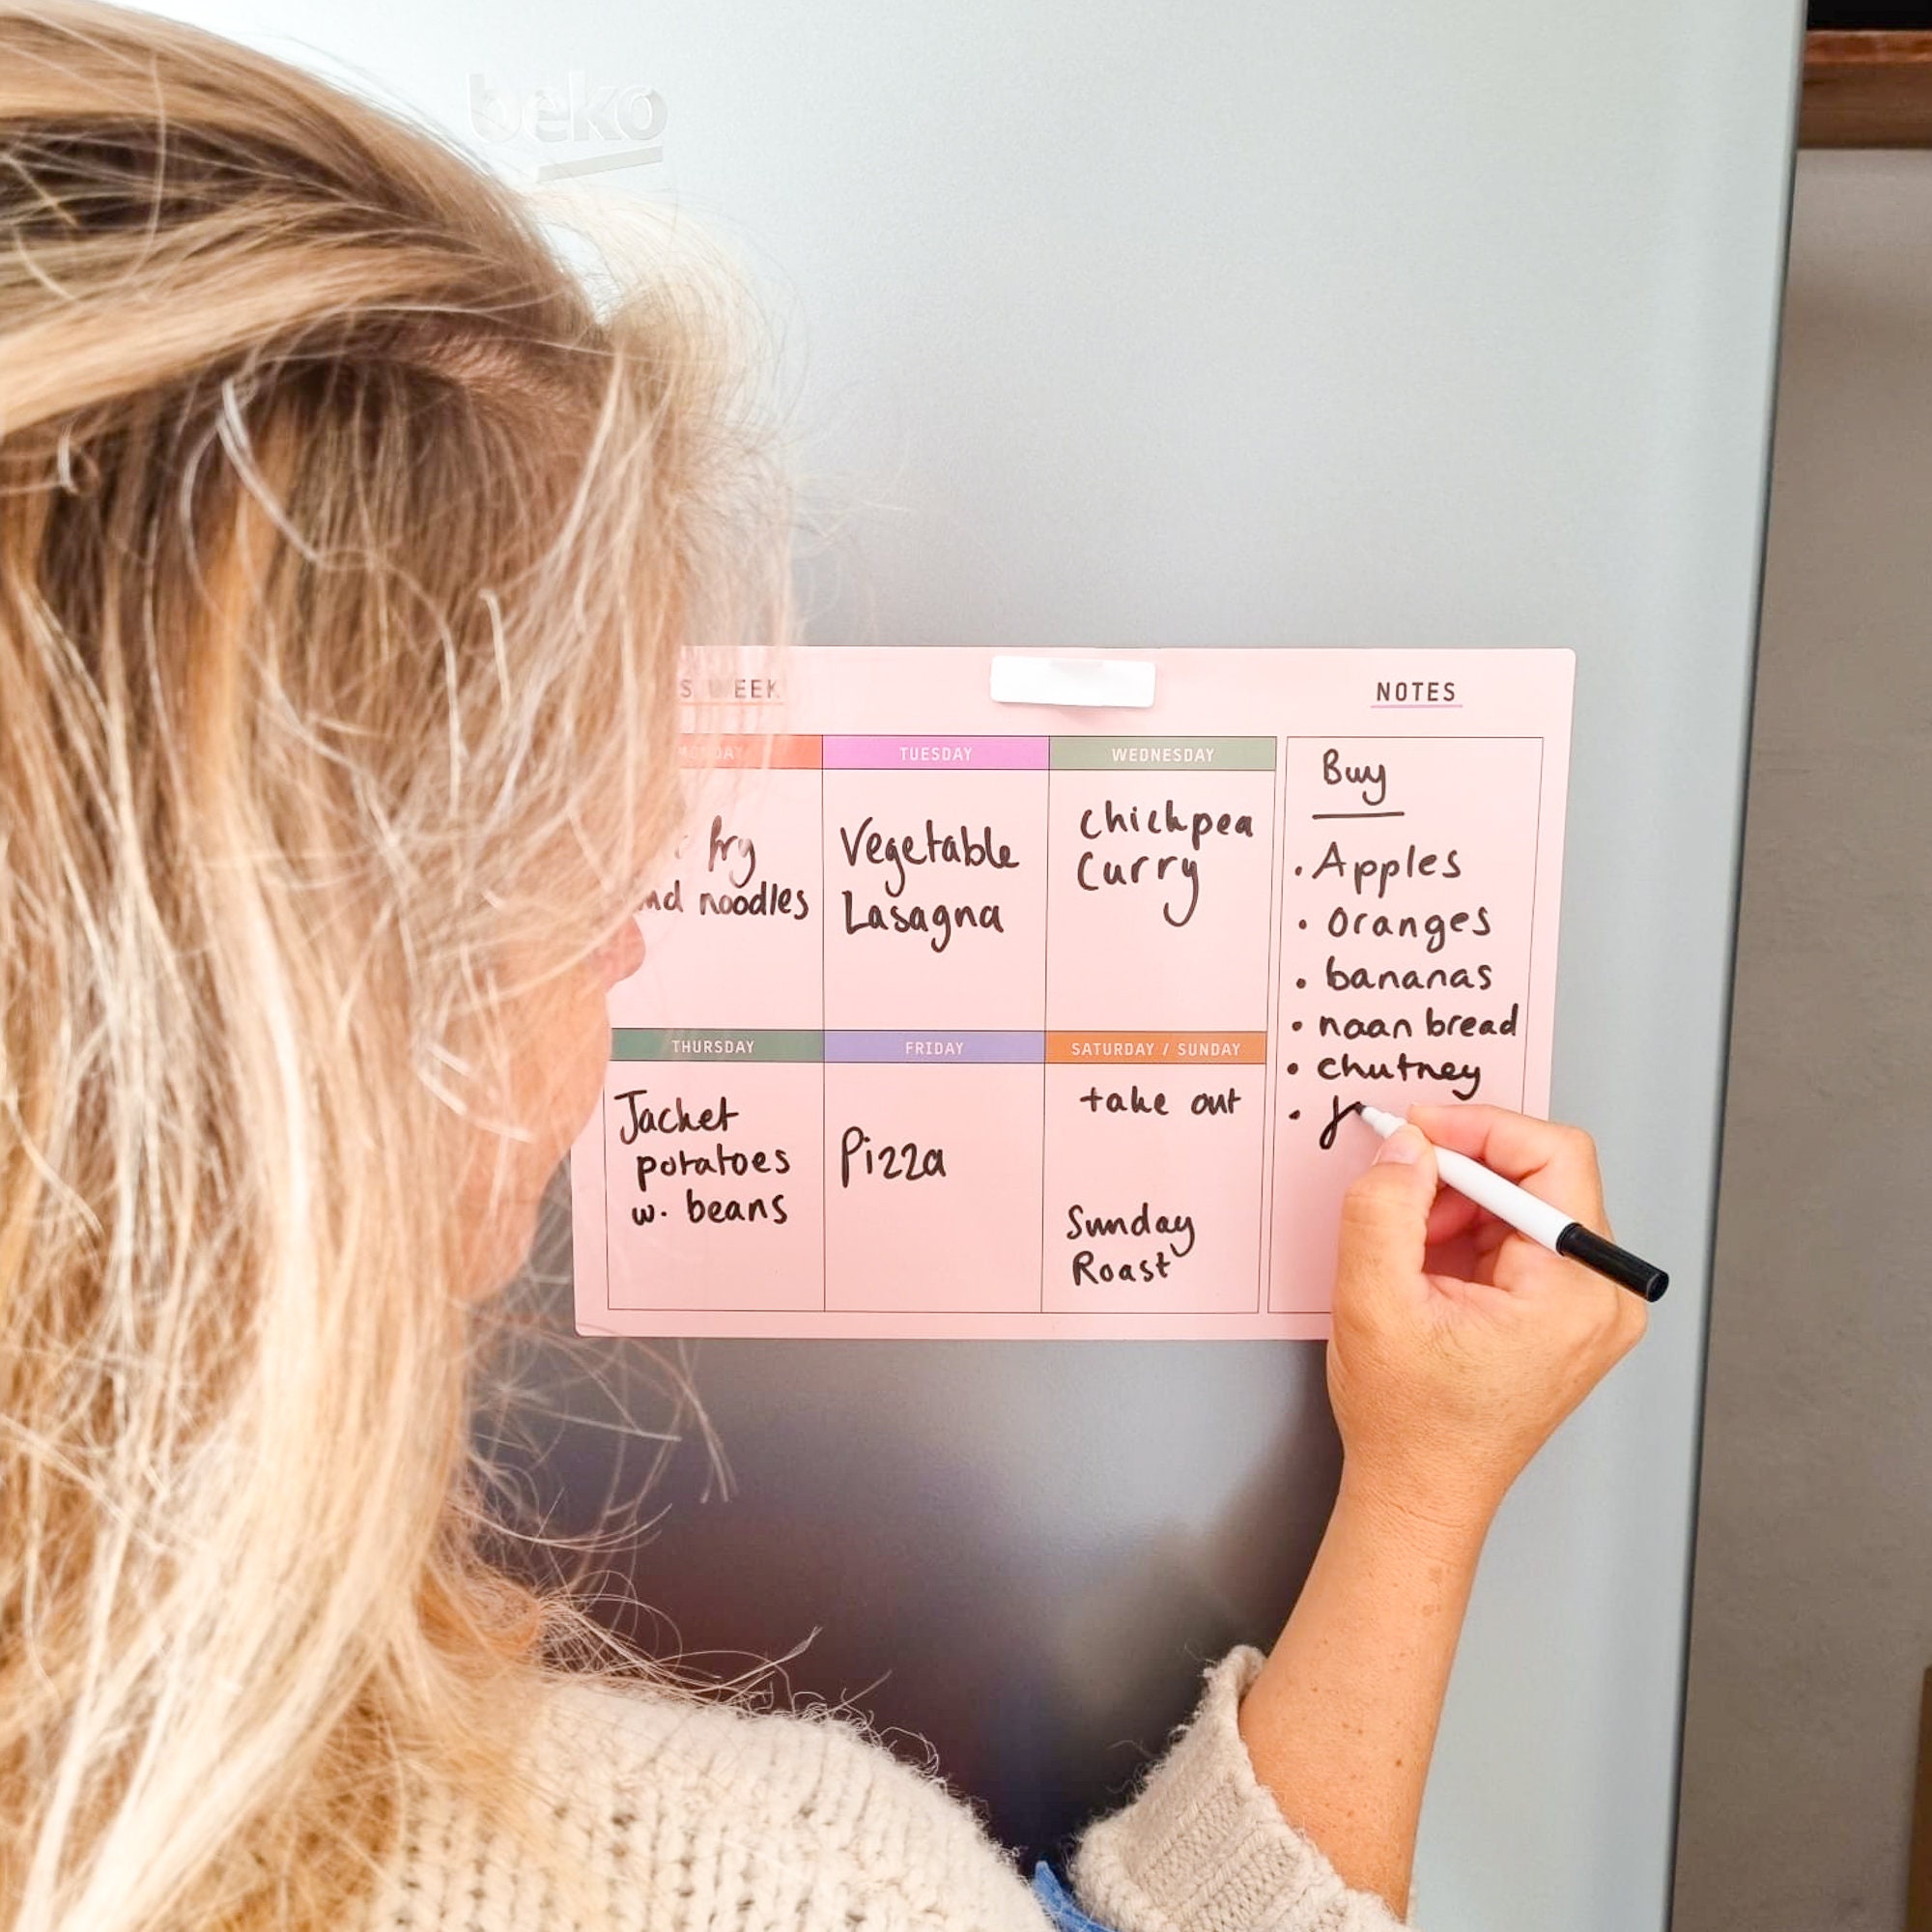 beko
NOTES
TUESDAY
WEDNESDAY
fry
noodles
Vegetable
Lasagna
Chickpea
Curry
THURSDAY
FRIDAY
SATURDAY / SUNDAY
Jacket
potatoes
w. beans
Pizza
take out
Sunday
Roast
Buy
• Apples
• oranges
• bananas
• naan bread
• chutney